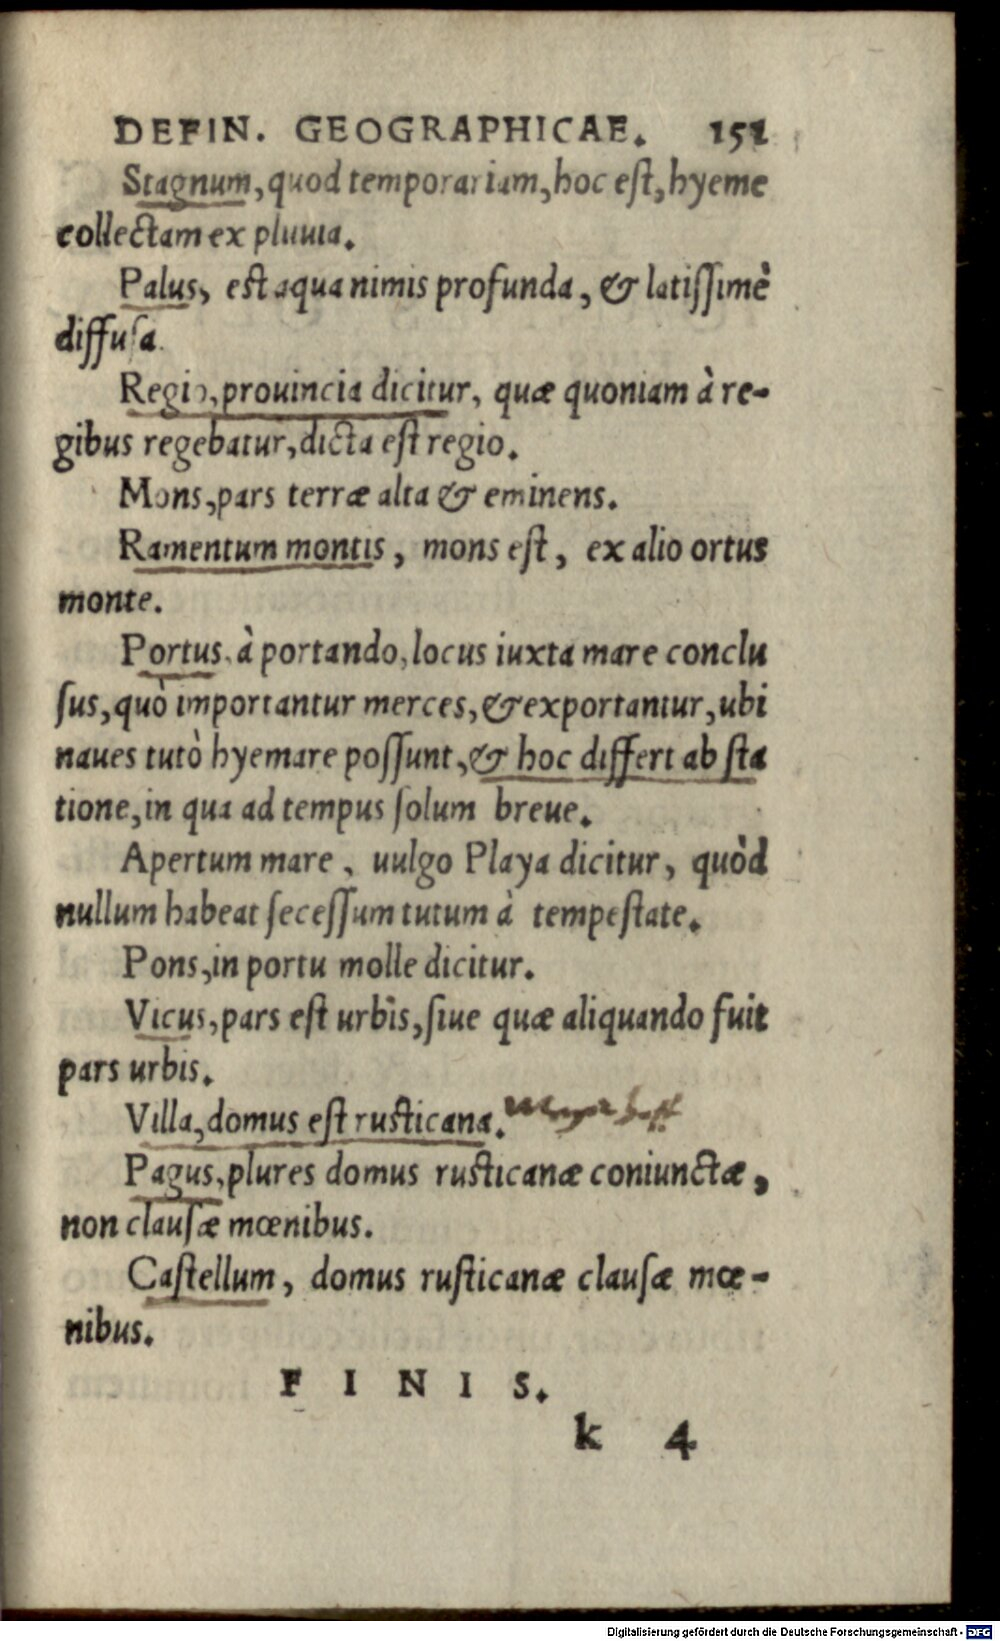 DEFIN. GEOGRAPHICAE. 151
Stagnum, quod temporariam, hoc est, hyeme
collectam ex pluuia.
Palus, est aqua nimis profunda, & latissimè
diffusa.
Regio, prouincia dicitur, quæ quoniam à re-
gibus regebatur, dicta est regio.
Mons, pars terræ alta & eminens.
Ramentum montis, mons est, ex alio ortus
monte.
Portus, à portando, locus iuxta mare conclu
sus, quò importantur merces, & exportantur, ubi
naues tutò hyemare possunt, & hoc differt ab sta
tione, in qua ad tempus solum breue.
Apertum mare, uulgo Playa dicitur, quòd
nullum habeat secessum tutum à tempestate.
Pons, in portu molle dicitur.
Vicus, pars est urbis, siue quæ aliquando fuit
pars urbis.
Villa, domus est rusticana.
Pagus, plures domus rusticanæ coniunctæ,
non clausæ mœnibus.
Castellum, domus rusticanæ clausæ mœ-
nibus.
F I N I S.
k 4
Digitalisierung gefördert durch die Deutsche Forschungsgemeinschaft - DFG